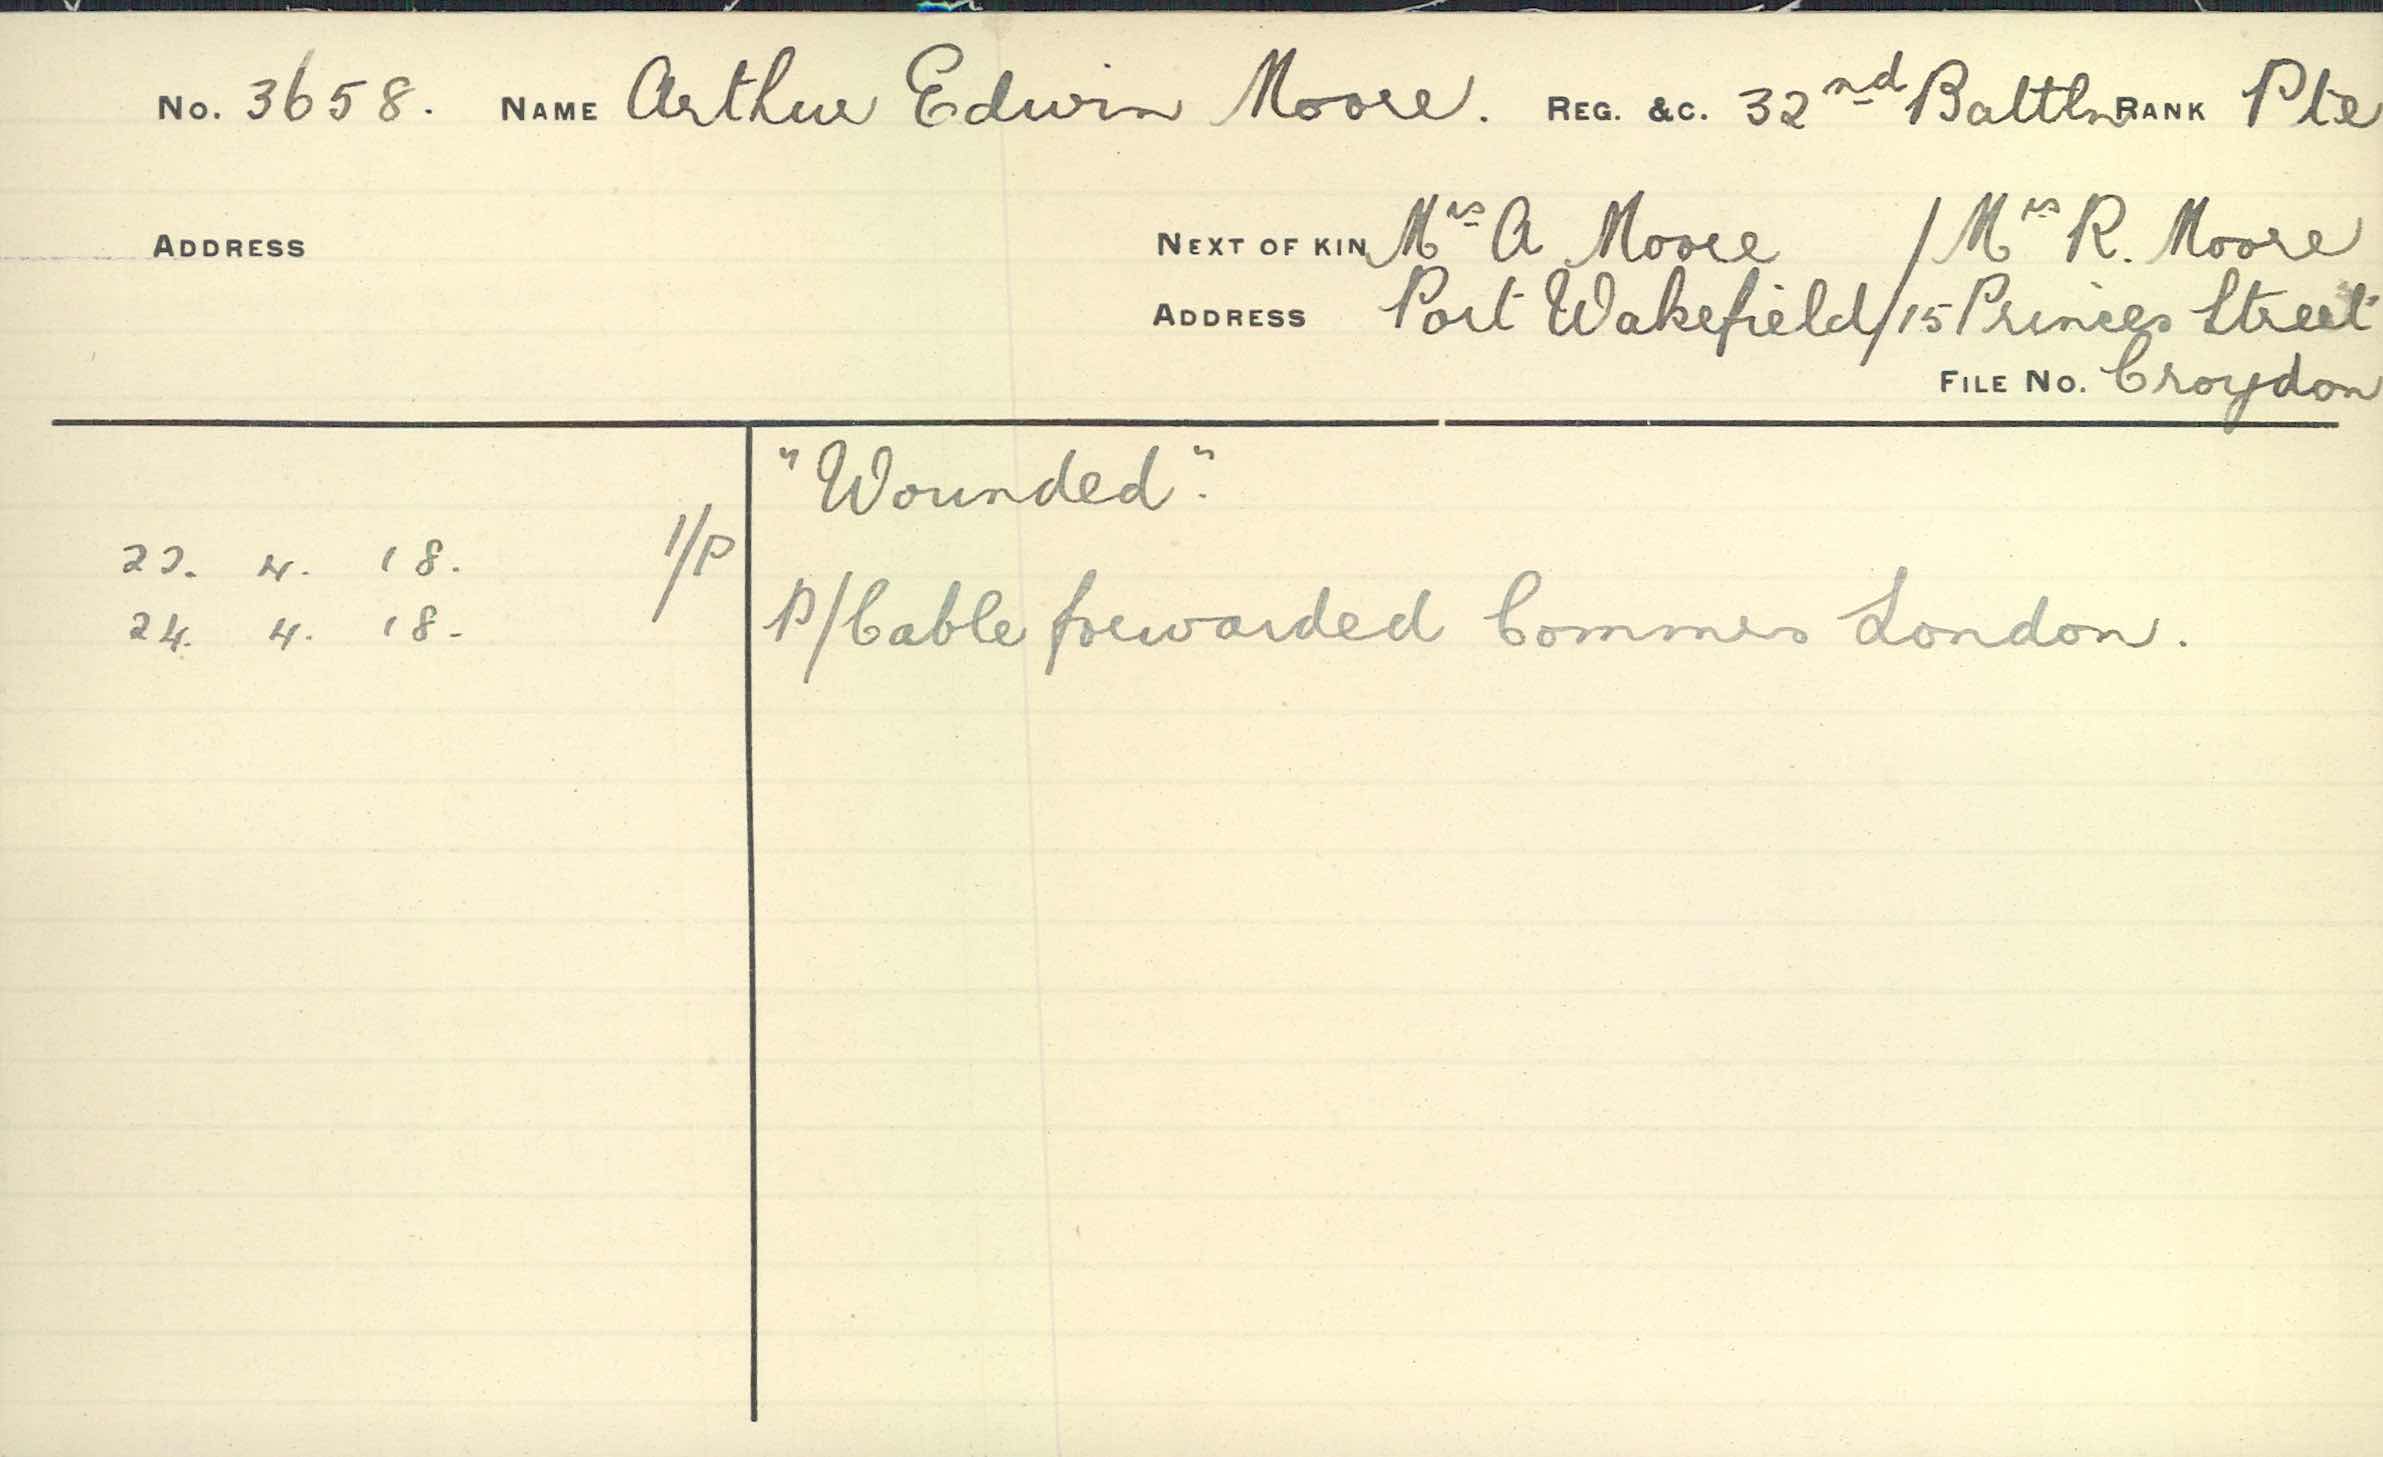 No. 3658. NAME Arthur Edwin Moore. REG. &C. 32nd Battln RANK Pte
ADDRESS NEXT OF KIN Mrs A Moore / Mrs R. Moore
ADDRESS Port Wakefield / 15 Princes Street
FILE No. Croydon
"Wounded".
22. 4. 18. 1/P
24. 4. 18. P/Cable forwarded Commrs London.